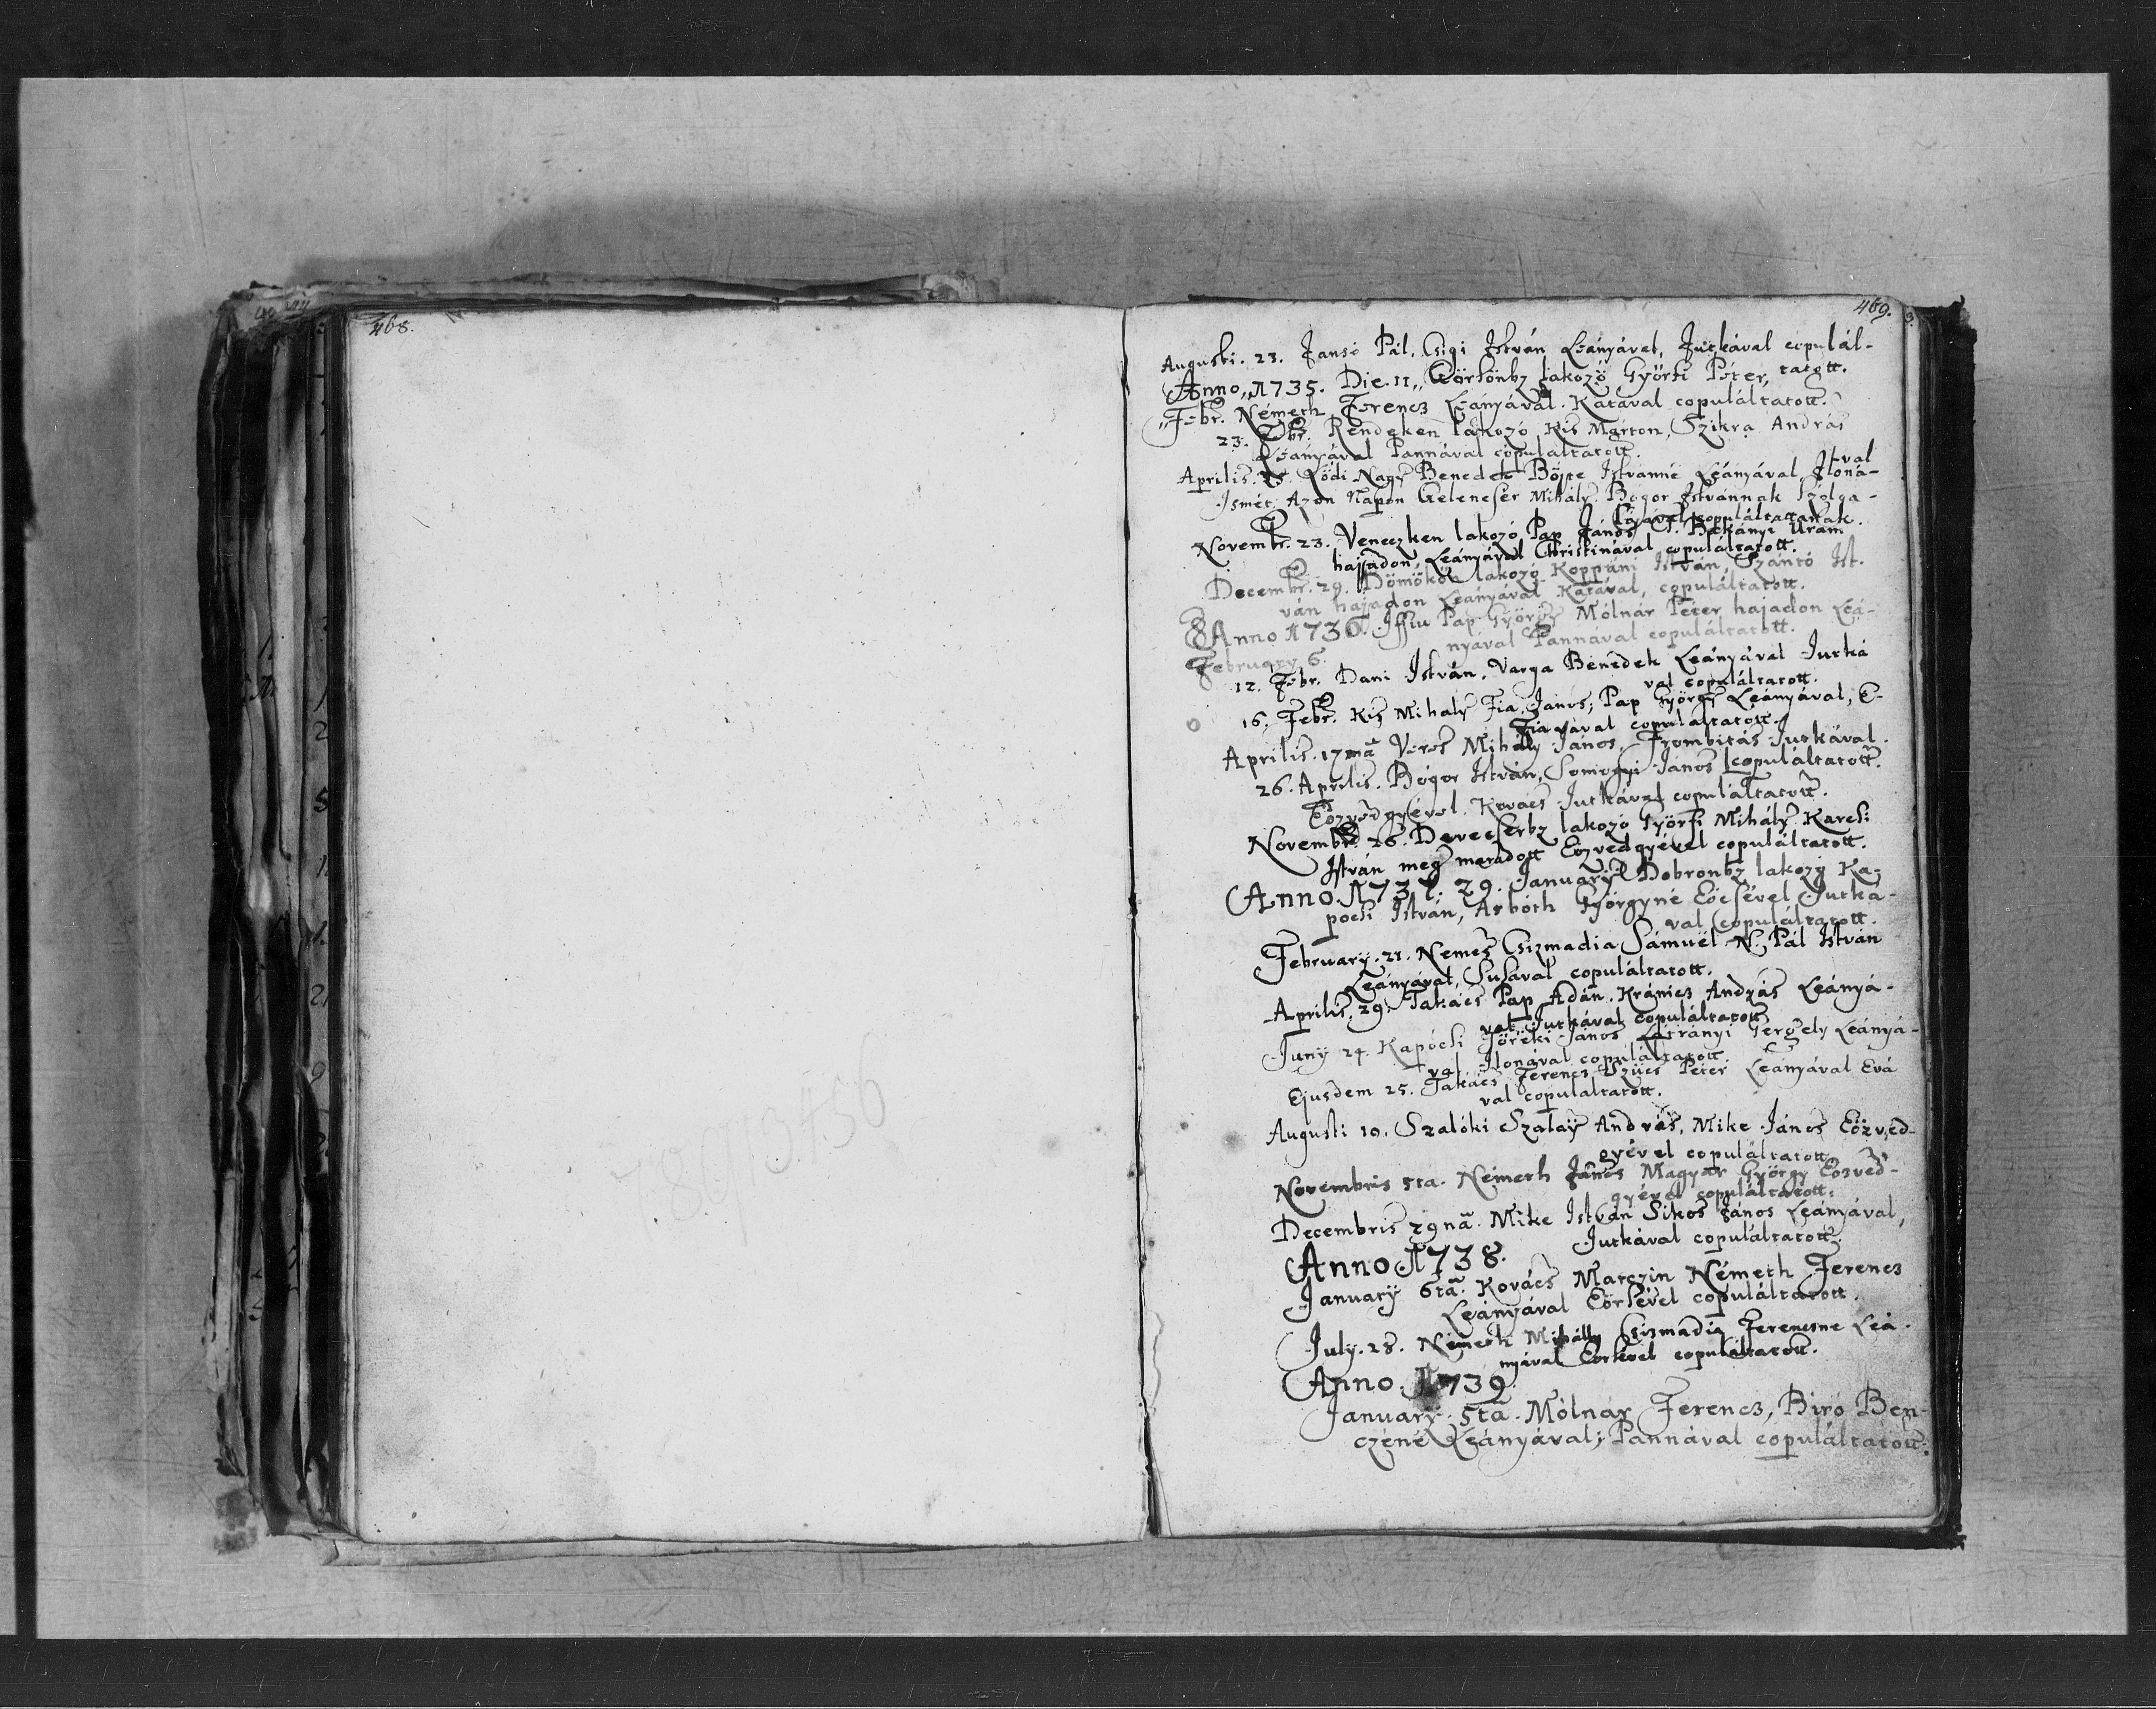 468.
469.
Augusti. 23. Jansó Pál, Csigi István Leányával, Jutkával copulál-
tatott.
Anno, 1735. Die. 11,, Eörsönbz lakozó Györfi Péter,
,,Febr. Németh Ferencz Leányával. Katával copuláltatott.
23. Febr. Rendeken lakozó Kis Márton, Szikra András
Leányával Pannával copuláltatott.
Aprilis. 25. Lödi Nagy Benedek Böjte Istvánné Leányával, Iloná-
val
Ismét Azon Napon Gelencsér Mihály. Bógor Istvánnak Szolga-
lójával copuláltattanak.
Novembr. 23. Veneczken lakozó Pap János T. Pákányi Uram
hajjadon Leányával Christinával copuláltatott.
Decembr. 29. Dömökön lakozó Koppáni István, Szántó Ist-
ván hajadon Leányával Katával, copuláltatott.
Anno 1736. Iffiu Pap György Mólnár Péter hajadon Leá-
nyával Pannával copuláltatott.
February 6.
12. Febr. Dani István, Varga Benedek Leányával Jutká
val copuláltatott.
16. Febr. Kis Mihály Fia, János, Pap György Leányával, E-
copuláltatott.
Aprilis. 17mâ Veres Mihály János, Trombitás Jutkával
copuláltatott.
26. Aprilis. Bógor István, Somogyi János
Eözvedgyével. Kovács Jutkával copuláltatott.
Novembr. 26. Devecserbz lakozó Györfi Mihály Karcsi
István meg maradott Eözvedgyével copuláltatott.
Anno. 1737. 29. January Dobronbz lakozó Ka-
pocsi István, Arbóth Györgyné Eöcsével Jutká-
val copuláltatott.
February. 21. Nemes Csizmadia Sámuel N. Pál István
Leányával, Susával copuláltatott.
Aprilis. 29. Takács Pap Adán. Kránicz András Leányá-
val Jutkával copuláltatott
Juny 24. Kapócsi Töreki János Látrányi Gergely Leányá-
val Ilonával copuláltatott.
Ejusdem 25. Takács Ferencz Szücs Péter Leányával Evá
val copuláltatott.
Augusti 10. Szalóki Szalay András, Mike János Eözved-
gyével copuláltatott.
Novembris 5ta. Németh János Magyar György Eözved-
gyével copuláltatott.
Decembris 29nâ. Mike István Sikos János Leányával,
Jutkával copuláltatott.
Anno 1738.
January 6tâ. Kovács Marczin Németh Ferencz
Leányával Eörsével copuláltatott.
July. 28. Németh Mihálly Csizmadia Ferencsne Leá-
nyával Eörsével copuláltatott.
Anno. 1739.
January. 5tâ. Mólnár Ferencz, Biró Ben-
czéné Leányával; Pannával copuláltatott.